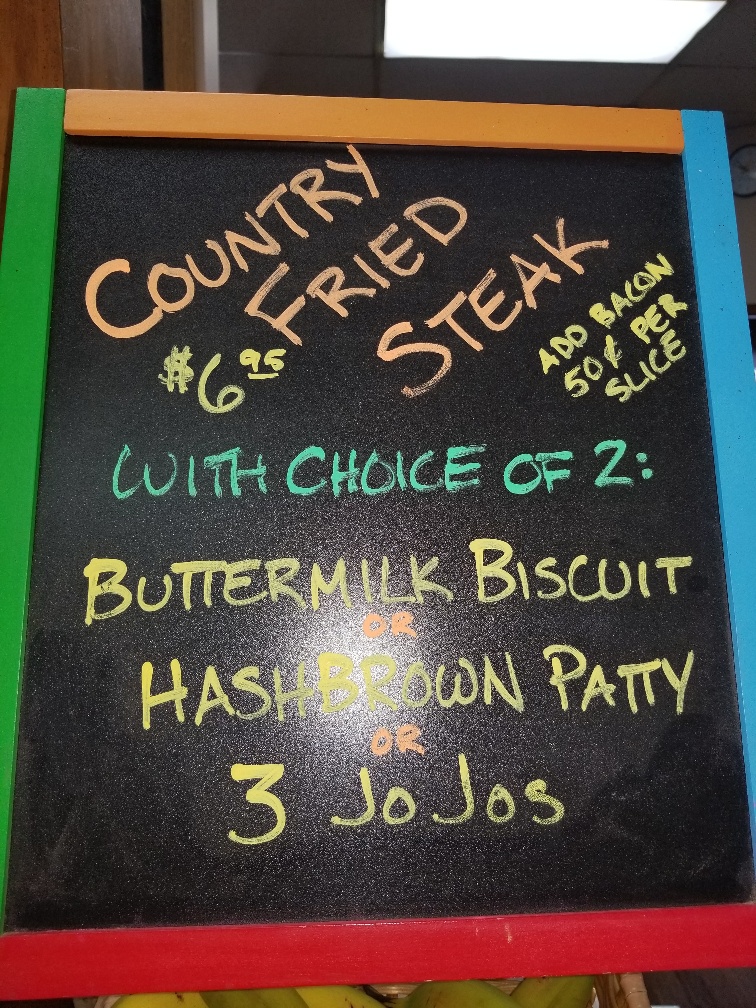 COUNTRY
FRIED
STEAK
$6.95
ADD BACON
50¢ PER
SLICE
WITH CHOICE OF 2:
BUTTERMILK BISCUIT
OR
HASHBROWN PATTY
OR
3 JOJOS